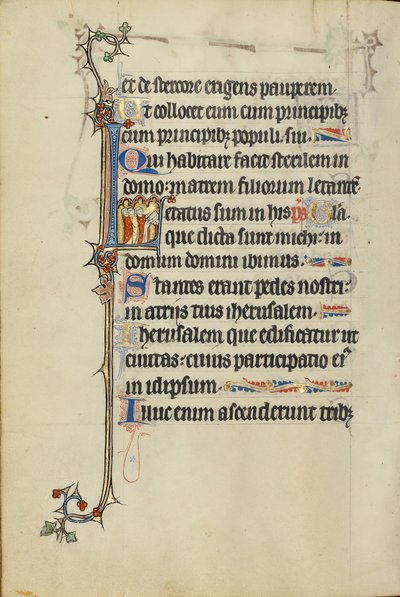 et de stercore erigens pauperem.
Ut collocet eum cum principibꝫ
cum principibꝫ populi sui.
Qui habitare facit sterilem in
domo: matrem filiorum letantē.
Letatus sum in hijs p̄s
que dicta sunt michi: in
domum domini ibimus.
Stantes erant pedes nostri:
in atrijs tuis iherusalem.
Iherusalem que edificatur ut
ciuitas: cuius participatio eiꝰ
in idipsum.
Illuc enim ascenderunt tribꝫ